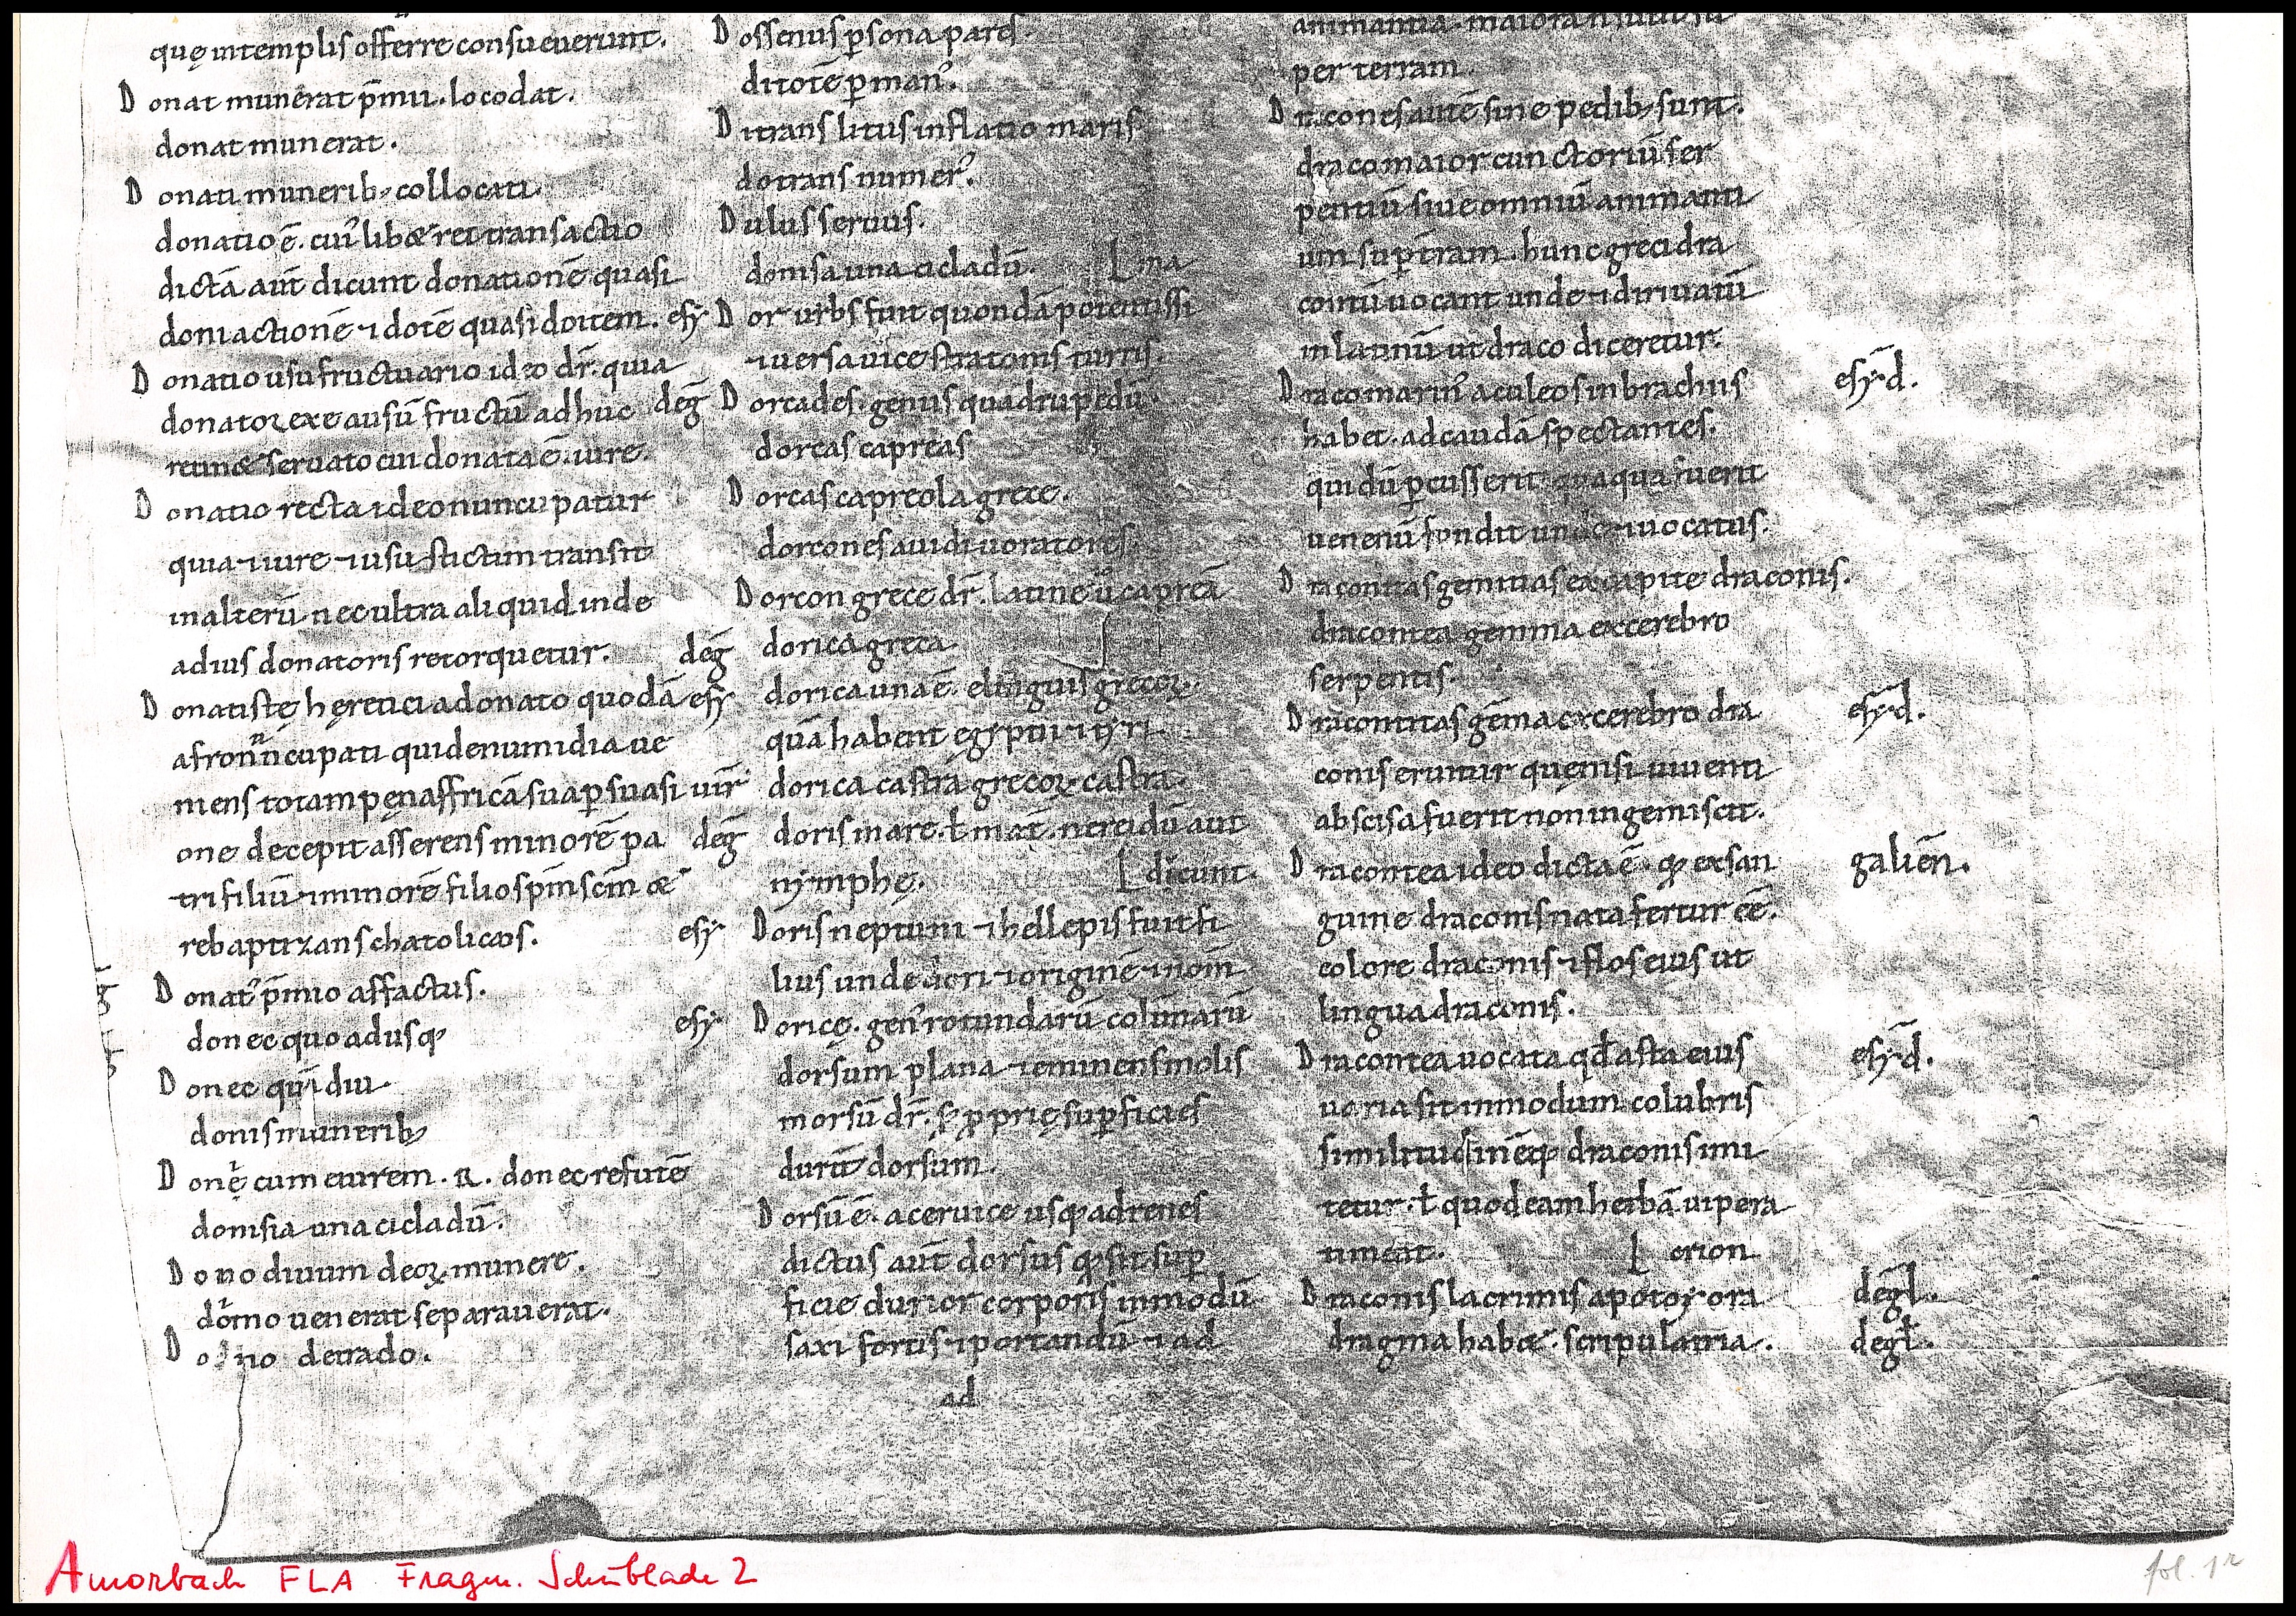 quę intemplis offerre consueuerunt.
D onat munerat p̄miu. locodat.
donat munerat.
D onati munerib; collocati.
donatio ē. cui'libæ rei transactio
dictā aut̄ dicunt donationē quasi
doni actionē ⁊ dotē quasi do item. esy
D onatio usufructuario ideo dr̄. quia
donator exea usū fructū adhuc deḡ
retinæ seruato cui donata ē. iure.
D onatio recta ideo nuncupatur
quia ⁊ iure ⁊ usu statim transit
inalterū nec ultra aliquid inde
adius donatoris retorquetur. deḡ
D onatistę hęretici adonato quodā esy
afro nūcupati qui de numidia ue
niens totam pęn affricā sua p̱suasi uir̄
one decepit asserens minorē pa deḡ
tri filiū ⁊ minorē filio sp̄m sc̄m æ
rebaptizans chatolicos.
D onat' p̄mio affactus.
donec quo adusq;
D onec quidiu
donis munerib;
D onęc cum eurem. R. donec refutē
donisia una cicladū.
D ono diuum deoꝝ munere.
domo uenerat separauerat.
D o no detrado.
D ossenus p̱sona pares.
ditotē p̱ man'.
D itrans litus inflatio maris
dotrans numer'.
D ulus seruus.
donisa una cicladū. [ ma
D or urbs fuit quondā potentissi
⁊ uersa uice stratonis turris.
D orcades. genus quadrupedū.
dorcas capreas
D orcas capreola grece.
dorcones auidi uoratores.
D orcon grece dr̄. latine ū capreā
dorica greca
dorica una ē. elinguis grecoꝝ.
quā habent egyptii ⁊ syri
dorica castra grecoꝝ castra.
doris mare. ł mat̄. nereidū aut
nymphę. [ dicunt.
esy D oris neptuni ⁊ hellepis fuit fi
lius unde dori ⁊ originē ⁊ nom̄
esy D oricę. gen' rotundarū colūnarū
dorsum plana ⁊ eminens molis
morsū dr̄. s; p̱prię sup̱ficies
durū dorsum.
D orsū ē. aceruice usq; adrenes
dictus aut̄ dorsus q; sit sup̱
ficie durior corporis inmodū
saxi fortis ⁊ portandū ⁊ ad
ad
animantia. maiora
per terram.
D racones autē sine pedib; sunt.
draco maior cunctoriū ser
pentiū siue omniū animanti
um sup̱ t̄ram. hunc greci dra
contū uocant unde ⁊ diriuatū
inlatinū ut draco diceretur.
D raco marin' aculeos inbrachiis esyd.
habet. adcaudā spectantes.
qui dū p̱cusserit quaqua fuerit
uenenū fundit unde ⁊ uocatus.
D racontias gemmas ex capite draconis.
dracontea gemma excerebro
serpentis.
D racontitas gēma excerebro dra esyd.
conis eruitur quęnisi uiuenti
abscisa fuerit non ingemiscit.
D racontea ideo dicta ē. q; exsan galiēn.
guine draconis nata fertur eē.
colore draconis ⁊ flos eius ut
lingua draconis.
D racontea uocata qđ asta eius esyd.
uaria sit inmodum colubris
similitudinēq; draconis imi
tetur. ł quod eam herbā uipera
timeat. [ erion
D raconis lacrimis apotoy ora deḡl.
dragma habæ. scripula tria. deḡl.
Amorbach FLA Fragm. Schublade 2
fol. 1r